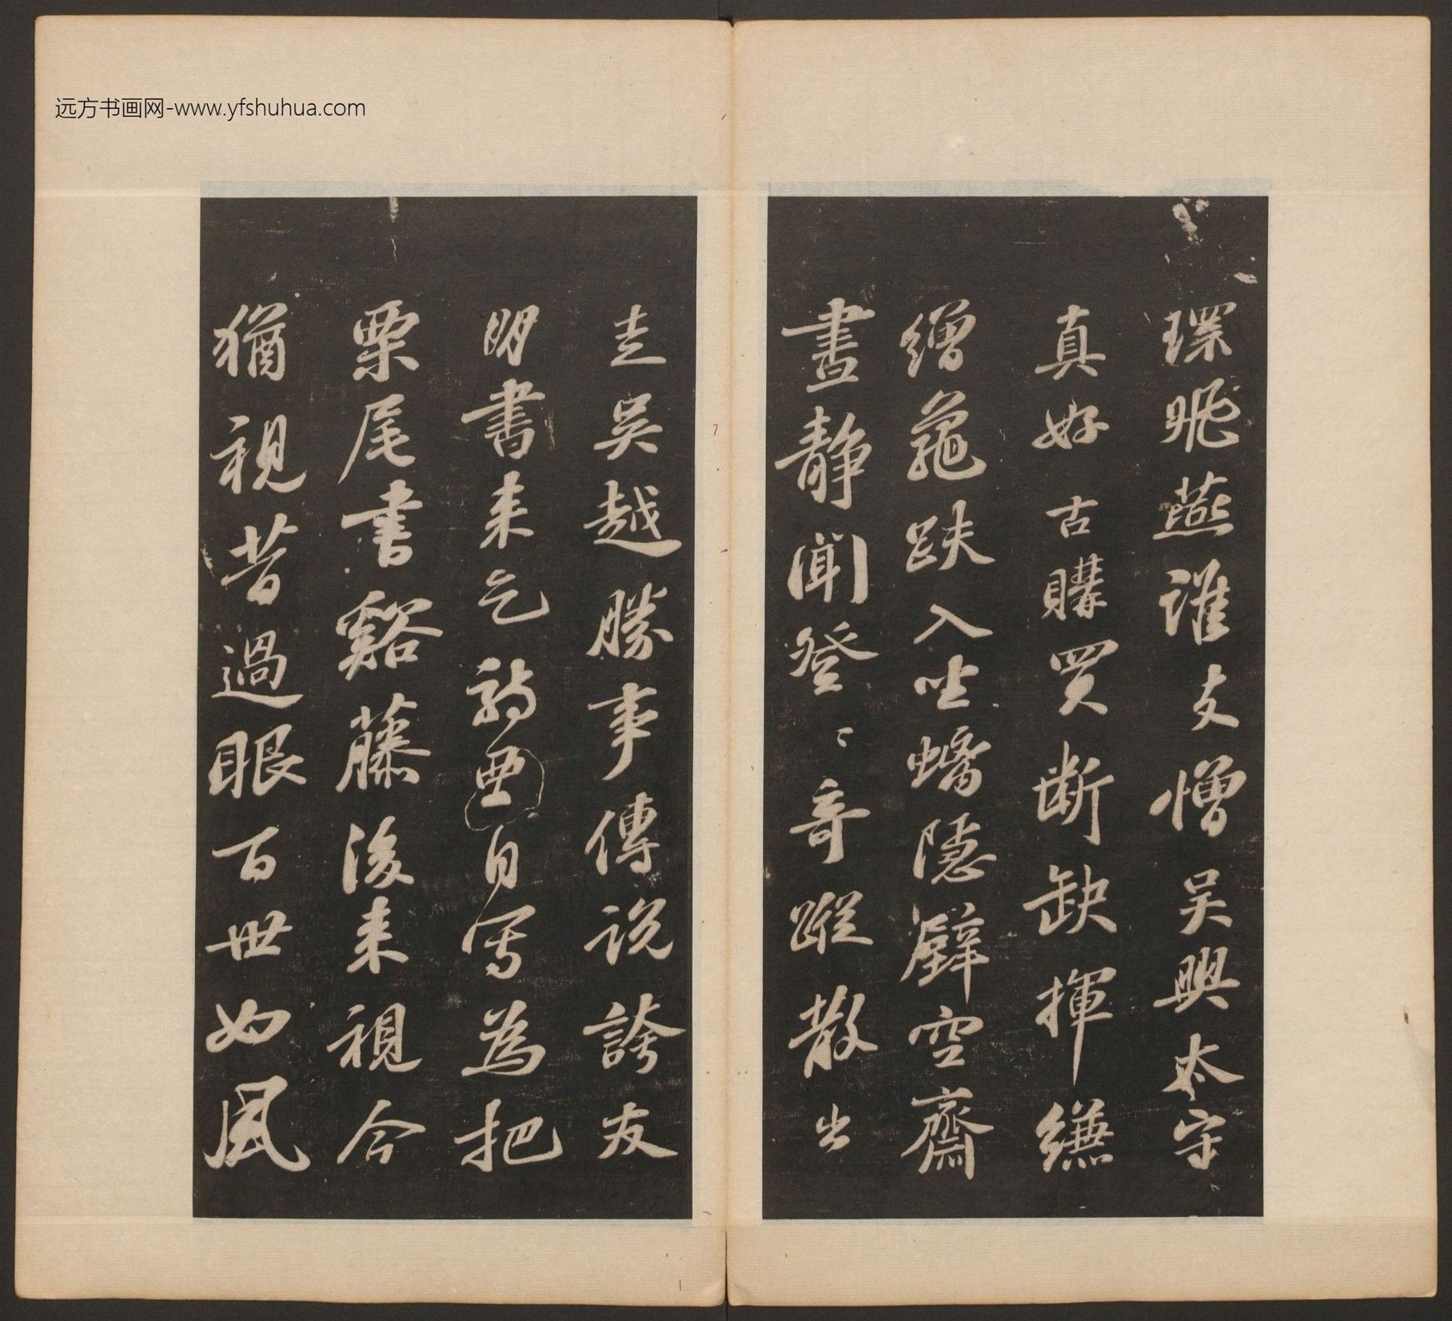 远方书画网-www.yfshuhua.com
環飛燕誰敢憎吳興太守
真好古購買斷缺揮縑
繒龜趺入坐螭隱壁空齋
晝靜聞登〻奇蹤散出
走吳越勝事傳説誇友
朋書来乞詩要自寫為把
栗尾書谿藤後来視今
猶視昔過眼百世如風